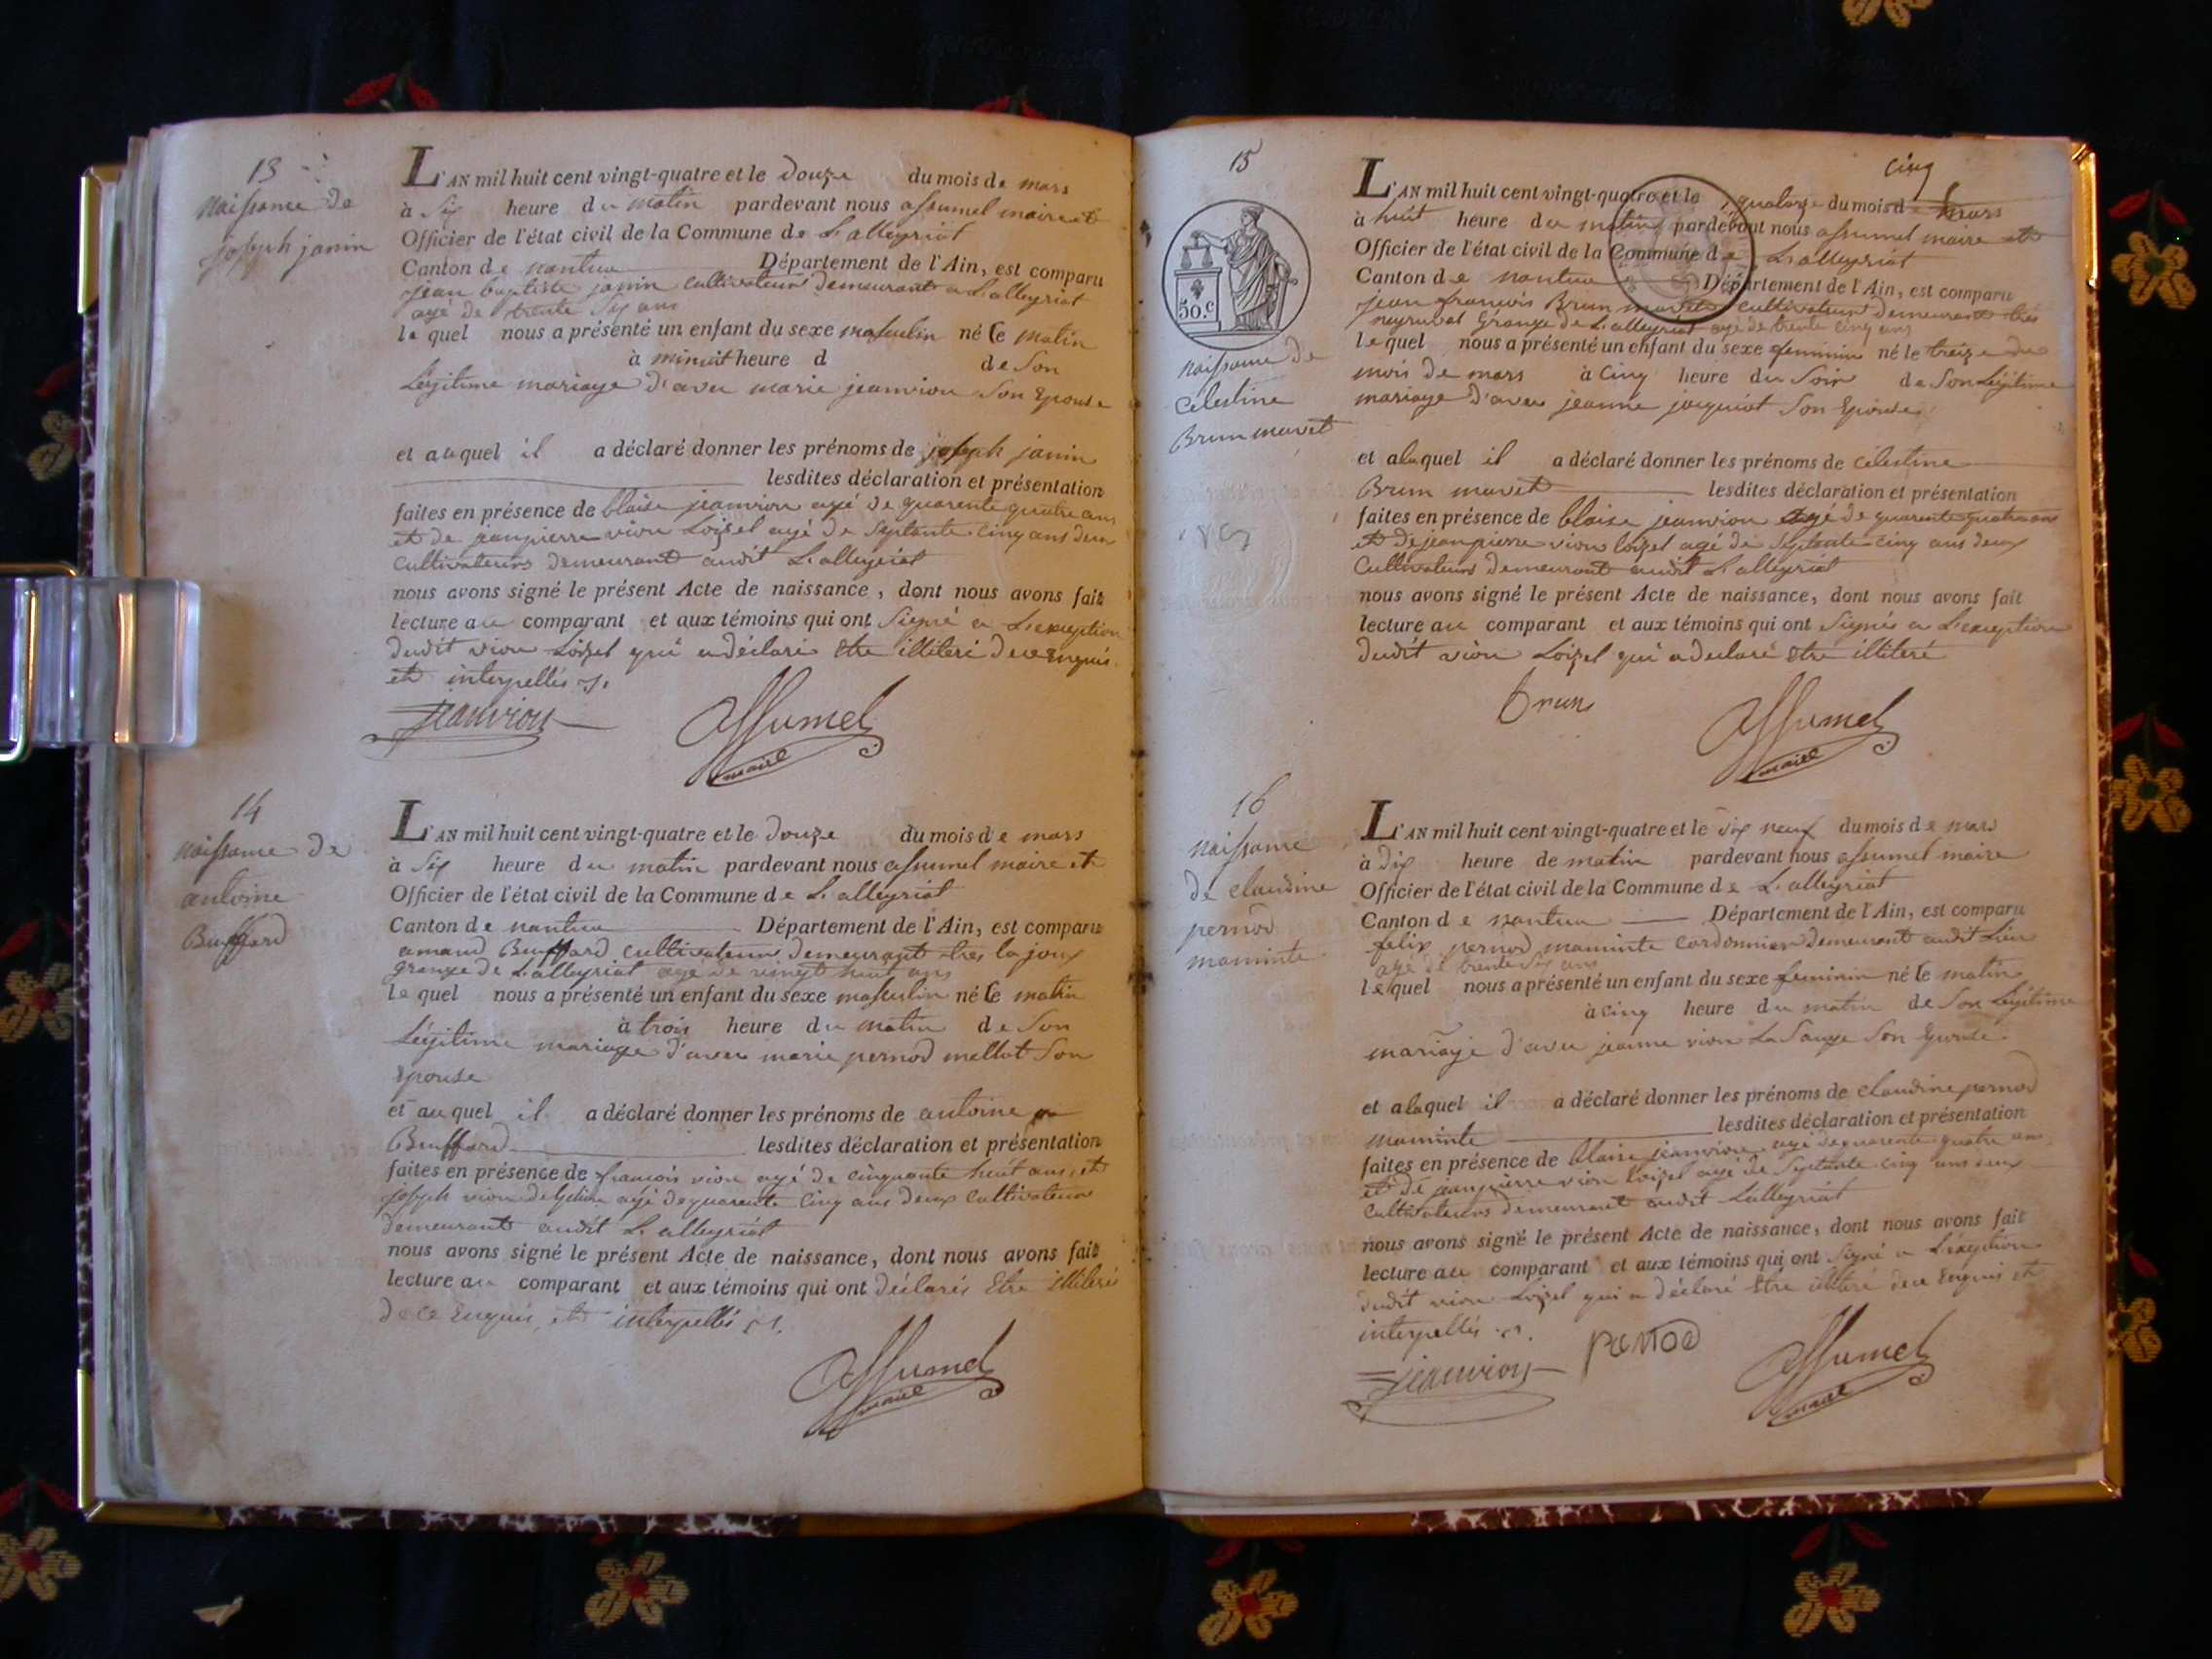 13
naissance de
joseph janin
L'AN mil huit cent vingt-quatre et le douze du mois de mars
à six heure du matin pardevant nous assumel maire et
Officier de l'état civil de la Commune de L'alleyriat
Canton de nantua Département de l'Ain, est comparu
jean baptiste janin cultivateur demeurant a L'alleyriat
agé de trente six ans
lequel nous a présenté un enfant du sexe masculin né le matin
à minuit heure d de Son
Légitime mariage d'avec marie jeanvion Son Epouse
et auquel il a déclaré donner les prénoms de joseph janin
lesdites déclaration et présentation
faites en présence de blaise jeanvion agé de quarente quatre ans
et de jeanpierre vion Loizel agé de Septante cinq ans deux
cultivateurs demeurant audit L'alleyriat
nous avons signé le présent Acte de naissance, dont nous avons fait
lecture au comparant et aux témoins qui ont Signé a L'exeption
dudit vion Loizel qui a déclaré Etre illiteré de ce Enquis
et interpellés
jeanvion
assumel
maire
14
naissance de
antoine
Buffard
L'AN mil huit cent vingt-quatre et le douze du mois de mars
à Six heure du matin pardevant nous assumel maire et
Officier de l'état civil de la Commune de L'alleyriat
Canton de nantua Département de l'Ain, est comparu
amand Buffard cultivateur demeurant tres la joux
grange de L'alleyriat agé de vingt huit ans
lequel nous a présenté un enfant du sexe masculin né le matin
à trois heure du matin de Son
Légitime mariage d'avec marie pernod mellot Son
Epouse
et auquel il a déclaré donner les prénoms de antoine
Buffard lesdites déclaration et présentation
faites en présence de francois vion agé de cinquante huit ans et
joseph vion agé de quarente cinq ans deux cultivateurs
demeurant audit L'alleyriat
nous avons signé le présent Acte de naissance, dont nous avons fait
lecture au comparant et aux témoins qui ont déclarés Etre illiterés
de ce Enquis et interpellés
assumel
maire
cinq
15
50.c
naissance de
célestine
Brun mavet
L'AN mil huit cent vingt-quatre et le quatorze du mois de mars
à huit heure du matin pardevant nous assumel maire et
Officier de l'état civil de la Commune de L'alleyriat
Canton de nantua Département de l'Ain, est comparu
jean francois Brun mavet cultivateur demeurant tres
Grange de L'alleyriat agé de trente cinq ans
lequel nous a présenté un enfant du sexe feminin né le treize du
mois de mars à cinq heure du Soir de Son Légitime
mariage d'avec jeanne jacquiot Son Epouse
et alaquel il a déclaré donner les prénoms de célestine
Brun mavet lesdites déclaration et présentation
faites en présence de blaise jeanvion agé de quarente quatre ans
et de jean pierre vion loizel agé de Septante cinq ans deux
Cultivateurs demeurant audit L'alleyriat
nous avons signé le présent Acte de naissance, dont nous avons fait
lecture au comparant et aux témoins qui ont Signés a L'exeption
dudit vion Loizel qui a declaré Etre illiteré
brun
assumel
maire
16
naissance
de claudine
pernod
maminte
L'AN mil huit cent vingt-quatre et le dix neuf du mois de mars
à dix heure de matin pardevant nous assumel maire
Officier de l'état civil de la Commune de L'alleyriat
Canton de nantua Département de l'Ain, est comparu
felix pernod maminte cordonnier demeurant audit Lieu
agé de trente six ans
lequel nous a présenté un enfant du sexe feminin né le matin
à cinq heure du matin de Son Légitime
mariage d'avec jeanne vion La Sauge Son Epouse
et alaquel il a déclaré donner les prénoms de claudine pernod
maminte lesdites déclaration et présentation
faites en présence de blaise jeanvion agé de quarente quatre ans
et de jeanpierre vion loizel agé de Septante cinq ans deux
cultivateurs demeurant audit L'alleyriat
nous avons signé le présent Acte de naissance, dont nous avons fait
lecture au comparant et aux témoins qui ont Signé a L'exeption
dudit vion Loizel qui a déclaré Etre illiteré de ce Enquis et
interpellés
jeanvion
pernod
assumel
maire